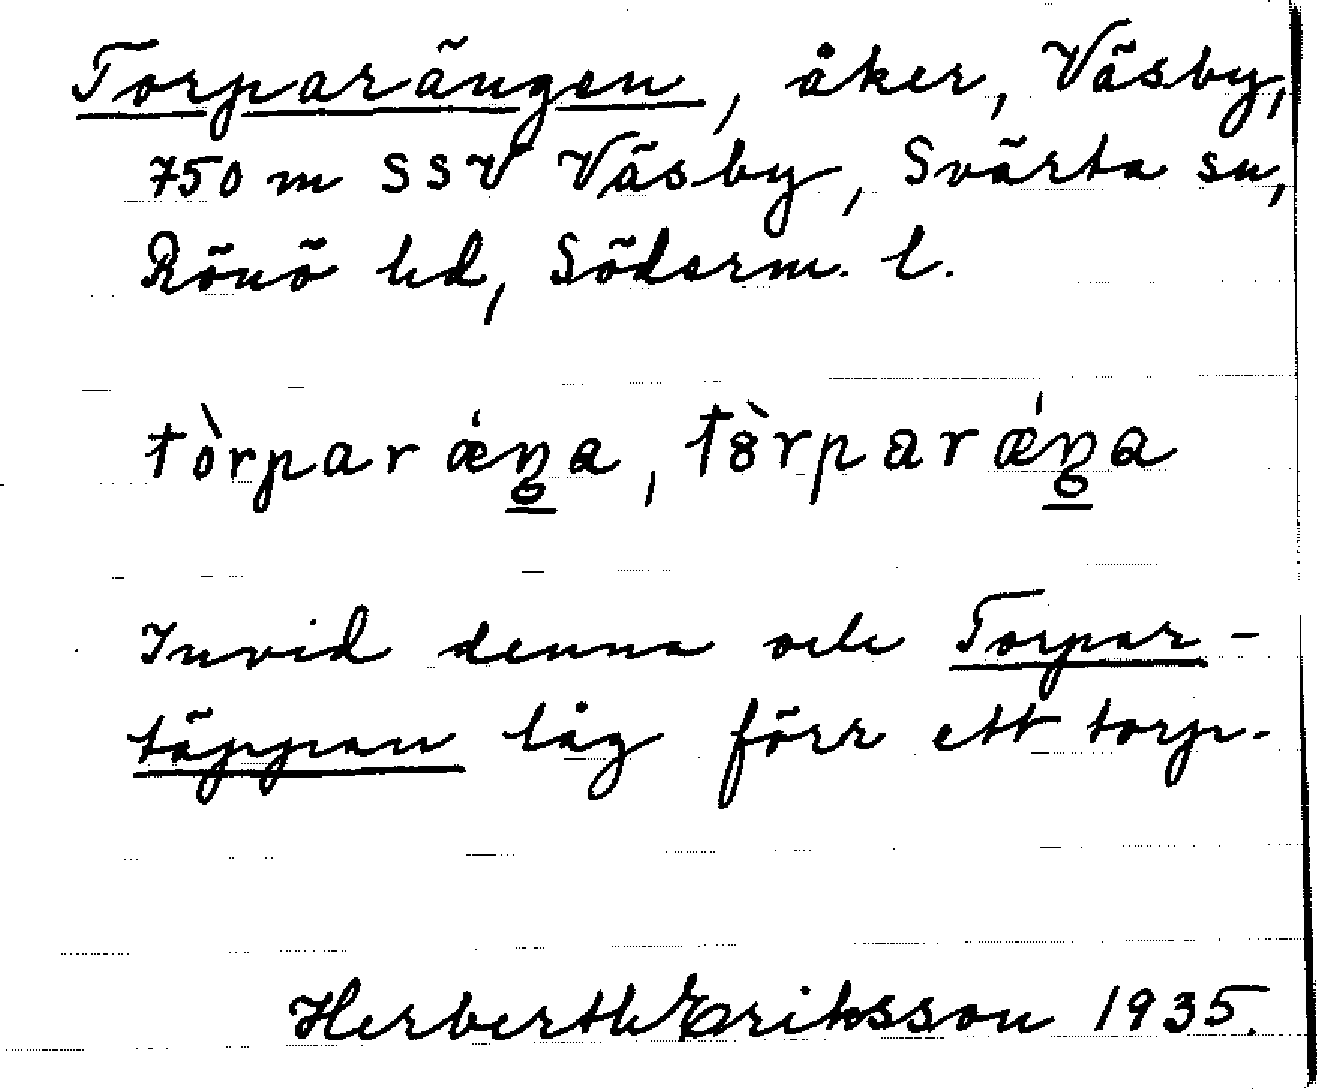 Torparängen, åker, Väsby,
750 m SSV Väsby, Svärta sn,
Rönö hd, Söderm. l.
tòrparǽŋa, tȣ̀rparǽŋa
Invid denna och Torpar-
täppan låg förr ett torp.
Herberth Eriksson 1935.